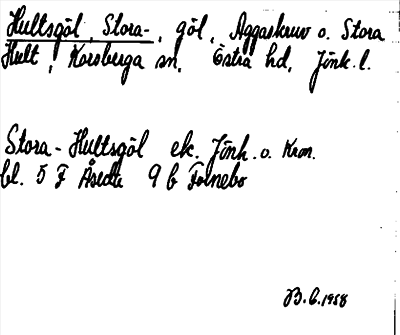 Hultsgöl, Stora-, göl, Aggaskruv o. Stora
Hult, Korsberga sn, Östra hd, Jönk.l.
Stora-Hultsgöl ek. Jönk. o. Kron.
bl. 5 F Åseda 9 b Folnebo
B.G. 1958